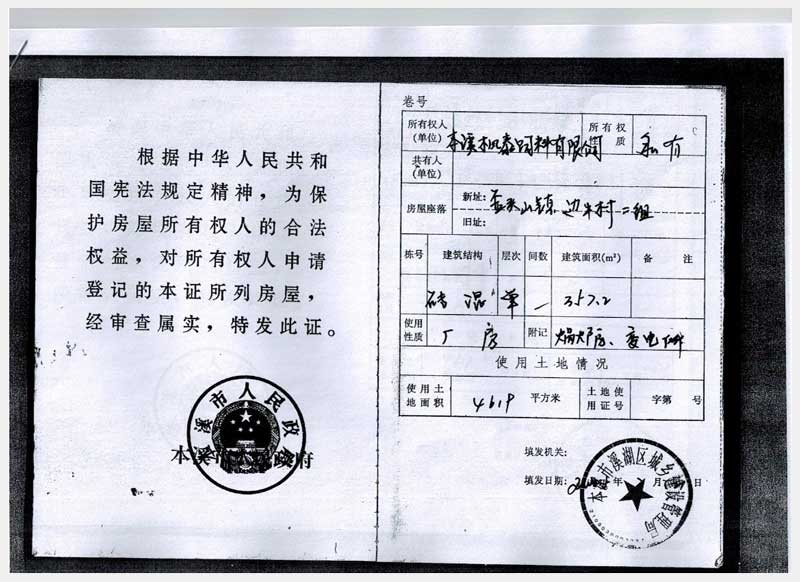 根据中华人民共和
国宪法规定精神，为保
护房屋所有权人的合法
权益，对所有权人申请
登记的本证所列房屋，
经审查属实，特发此证。
本溪市人民政府
卷号
所有权人
(单位)
本溪 泰饲料有限公司
所有权
质
私有
共有人
(单位)
房屋座落
新址: 山镇 边牛村 二组
旧址:
栋号
建筑结构
层次
间数
建筑面积(m²)
备 注
砖混
单
357.2
使用
性质
厂房
附记
锅炉房、变电
使用土地情况
使用土
地面积
4619 平方米
土地使
用证号
字第 号
填发机关:
填发日期: 年 月 日
本溪市溪湖区城乡建设管理局